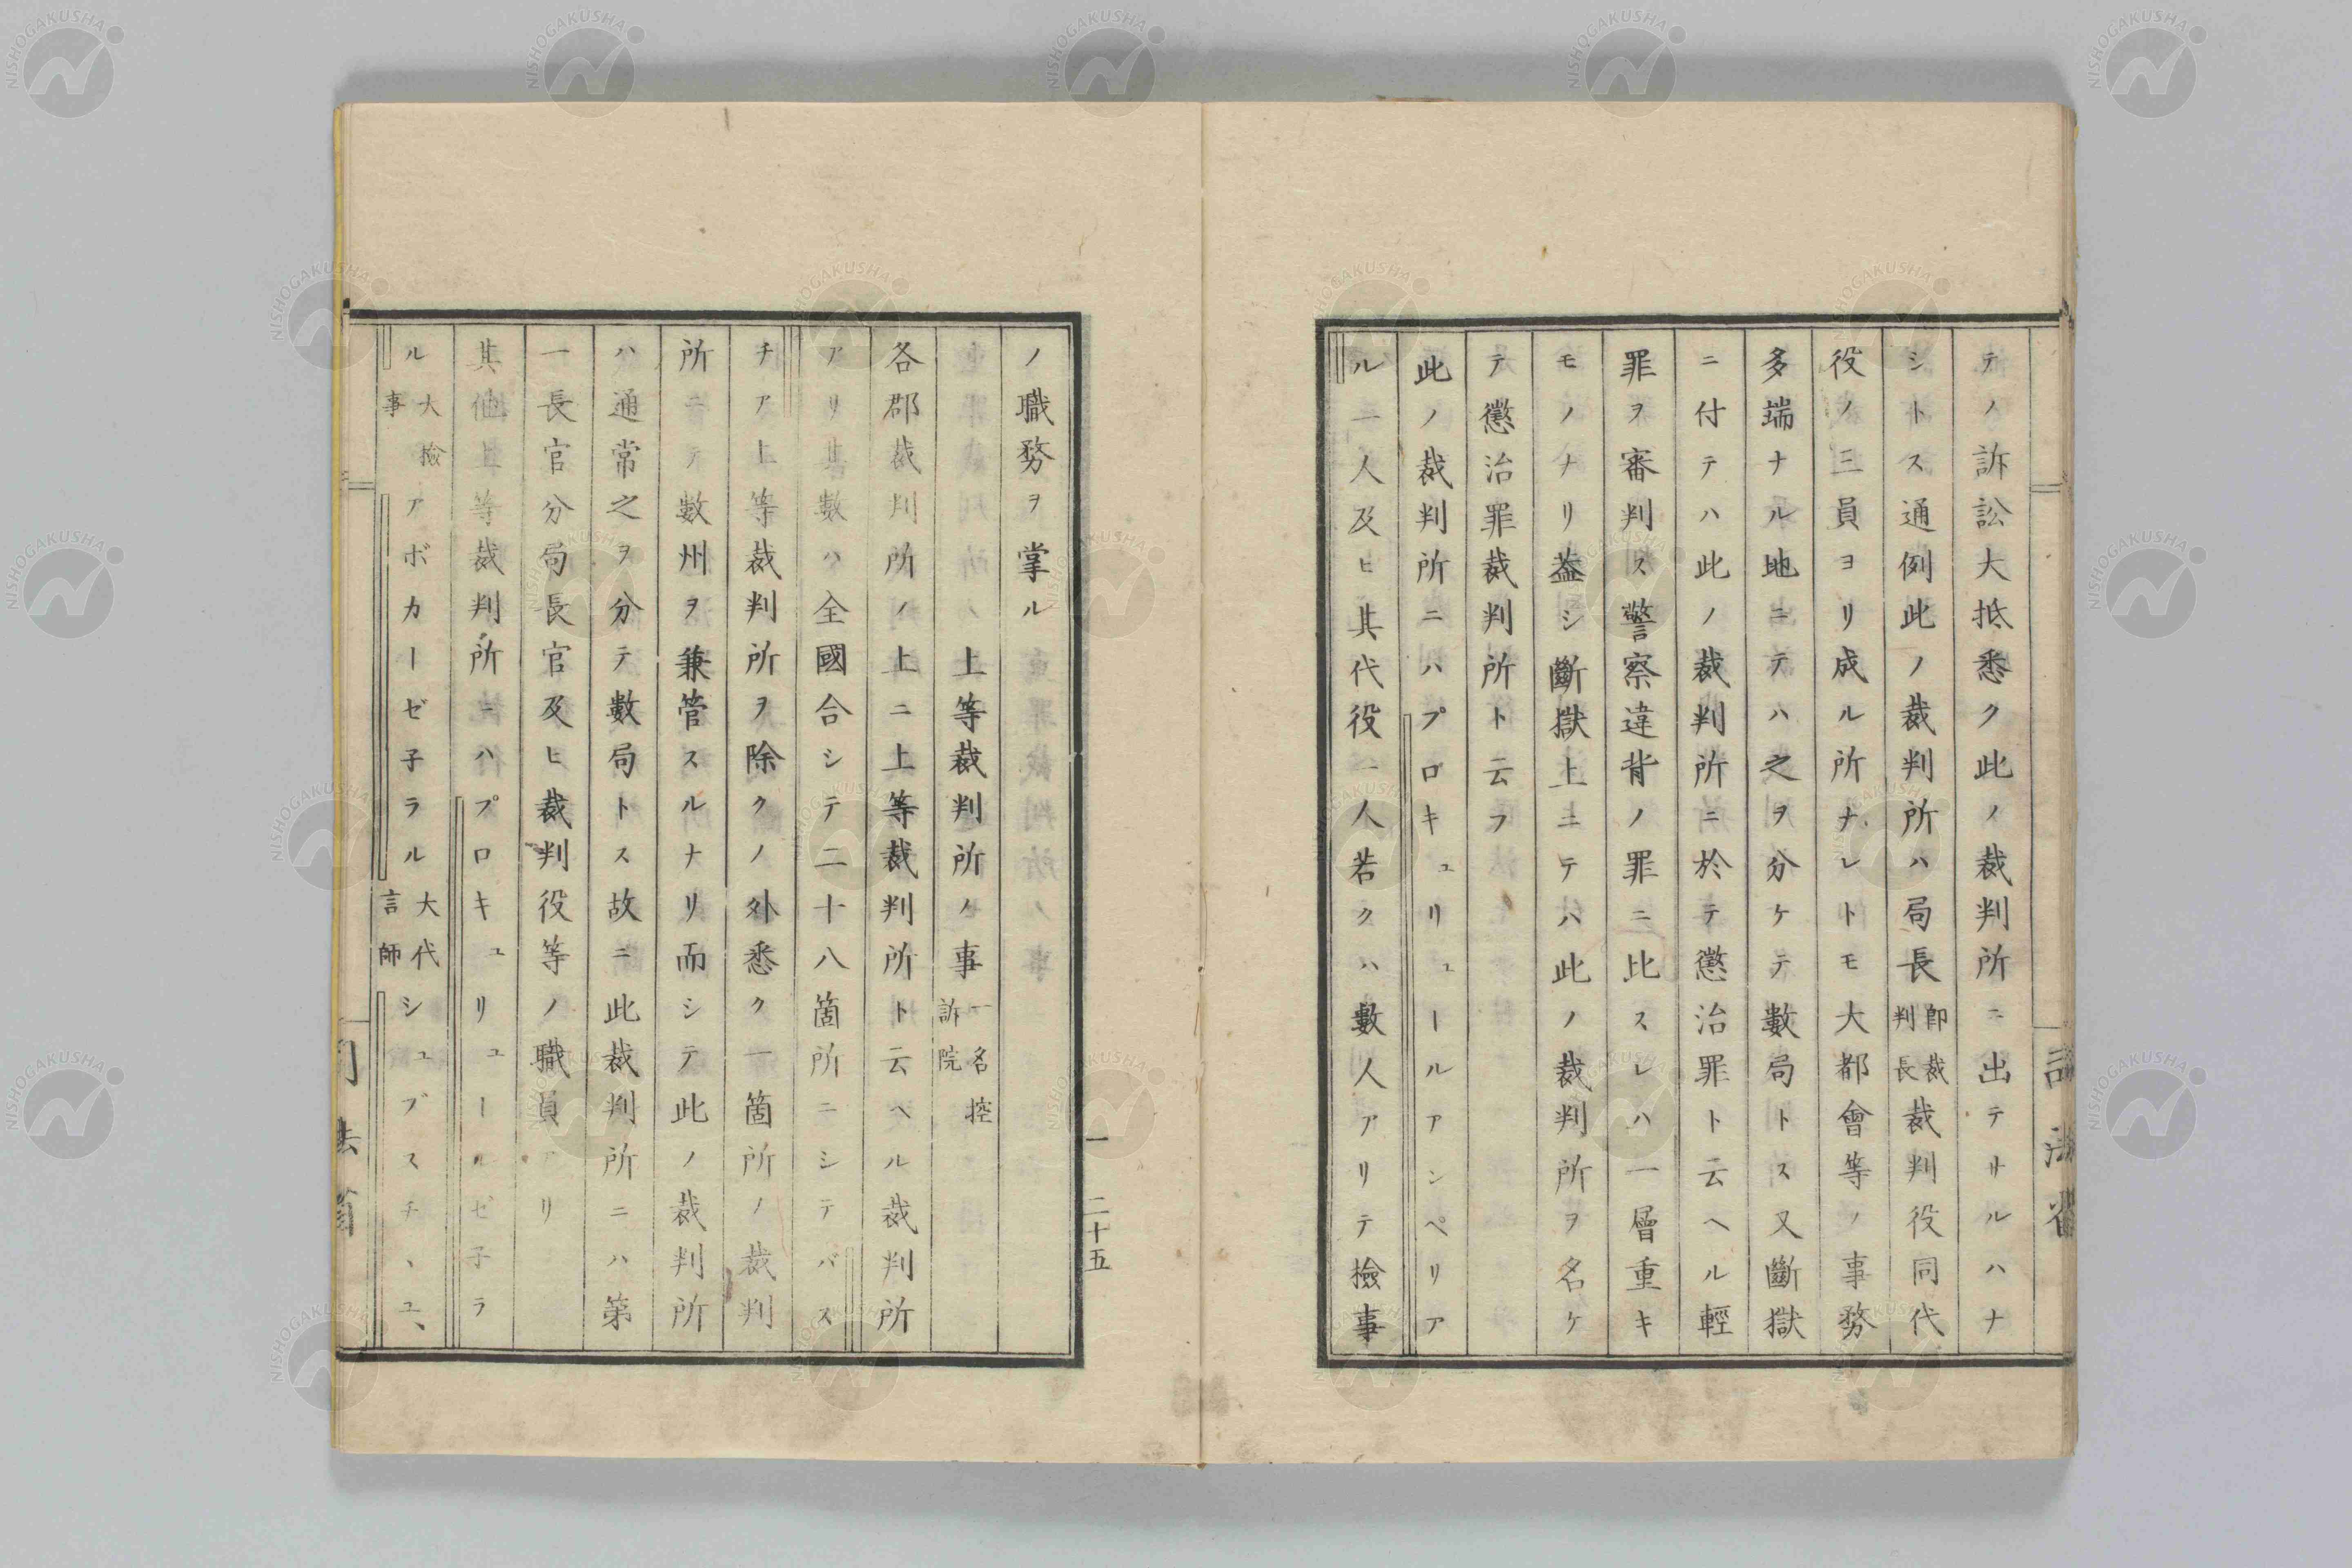 テノ訴訟大抵悉ク此ノ裁判所ニ出テサルハナ
シトス通例此ノ裁判所ハ局長即裁判長裁判役同代
役ノ三員ヨリ成ル所ナレトモ大都會等ノ事務
多端ナル地ニテハ之ヲ分ケテ數局トス又斷獄
ニ付テハ此ノ裁判所ニ於テ懲治罪ト云ヘル輕
罪ヲ審判ス警察違背ノ罪ニ比スレハ一層重キ
モノナリ葢シ斷獄上ニテハ此ノ裁判所ヲ名ケ
テ懲治罪裁判所ト云フ
此ノ裁判所ニハプロキュリュールアンペリア
ル一人及ヒ其代役一人若クハ數人アリテ撿事
ノ職務ヲ掌ル
上等裁判所ノ事一名控訴院
各郡裁判所ノ上ニ上等裁判所ト云ヘル裁判所
アリ其數ハ全國合シテ二十八箇所ニシテバス
チア上等裁判所ヲ除クノ外悉ク一箇所ノ裁判
所ニテ數州ヲ兼管スルナリ而シテ此ノ裁判所
ハ通常之ヲ分テ數局トス故ニ此裁判所ニハ第
一長官分局長官及ヒ裁判役等ノ職員アリ
其他上等裁判所ニハプロキュリュールゼ子ラ
ル大撿事アボカーゼ子ラル大代言師シュブスチ、ユ、
司法省
二十五
NISHOGAKUSHA